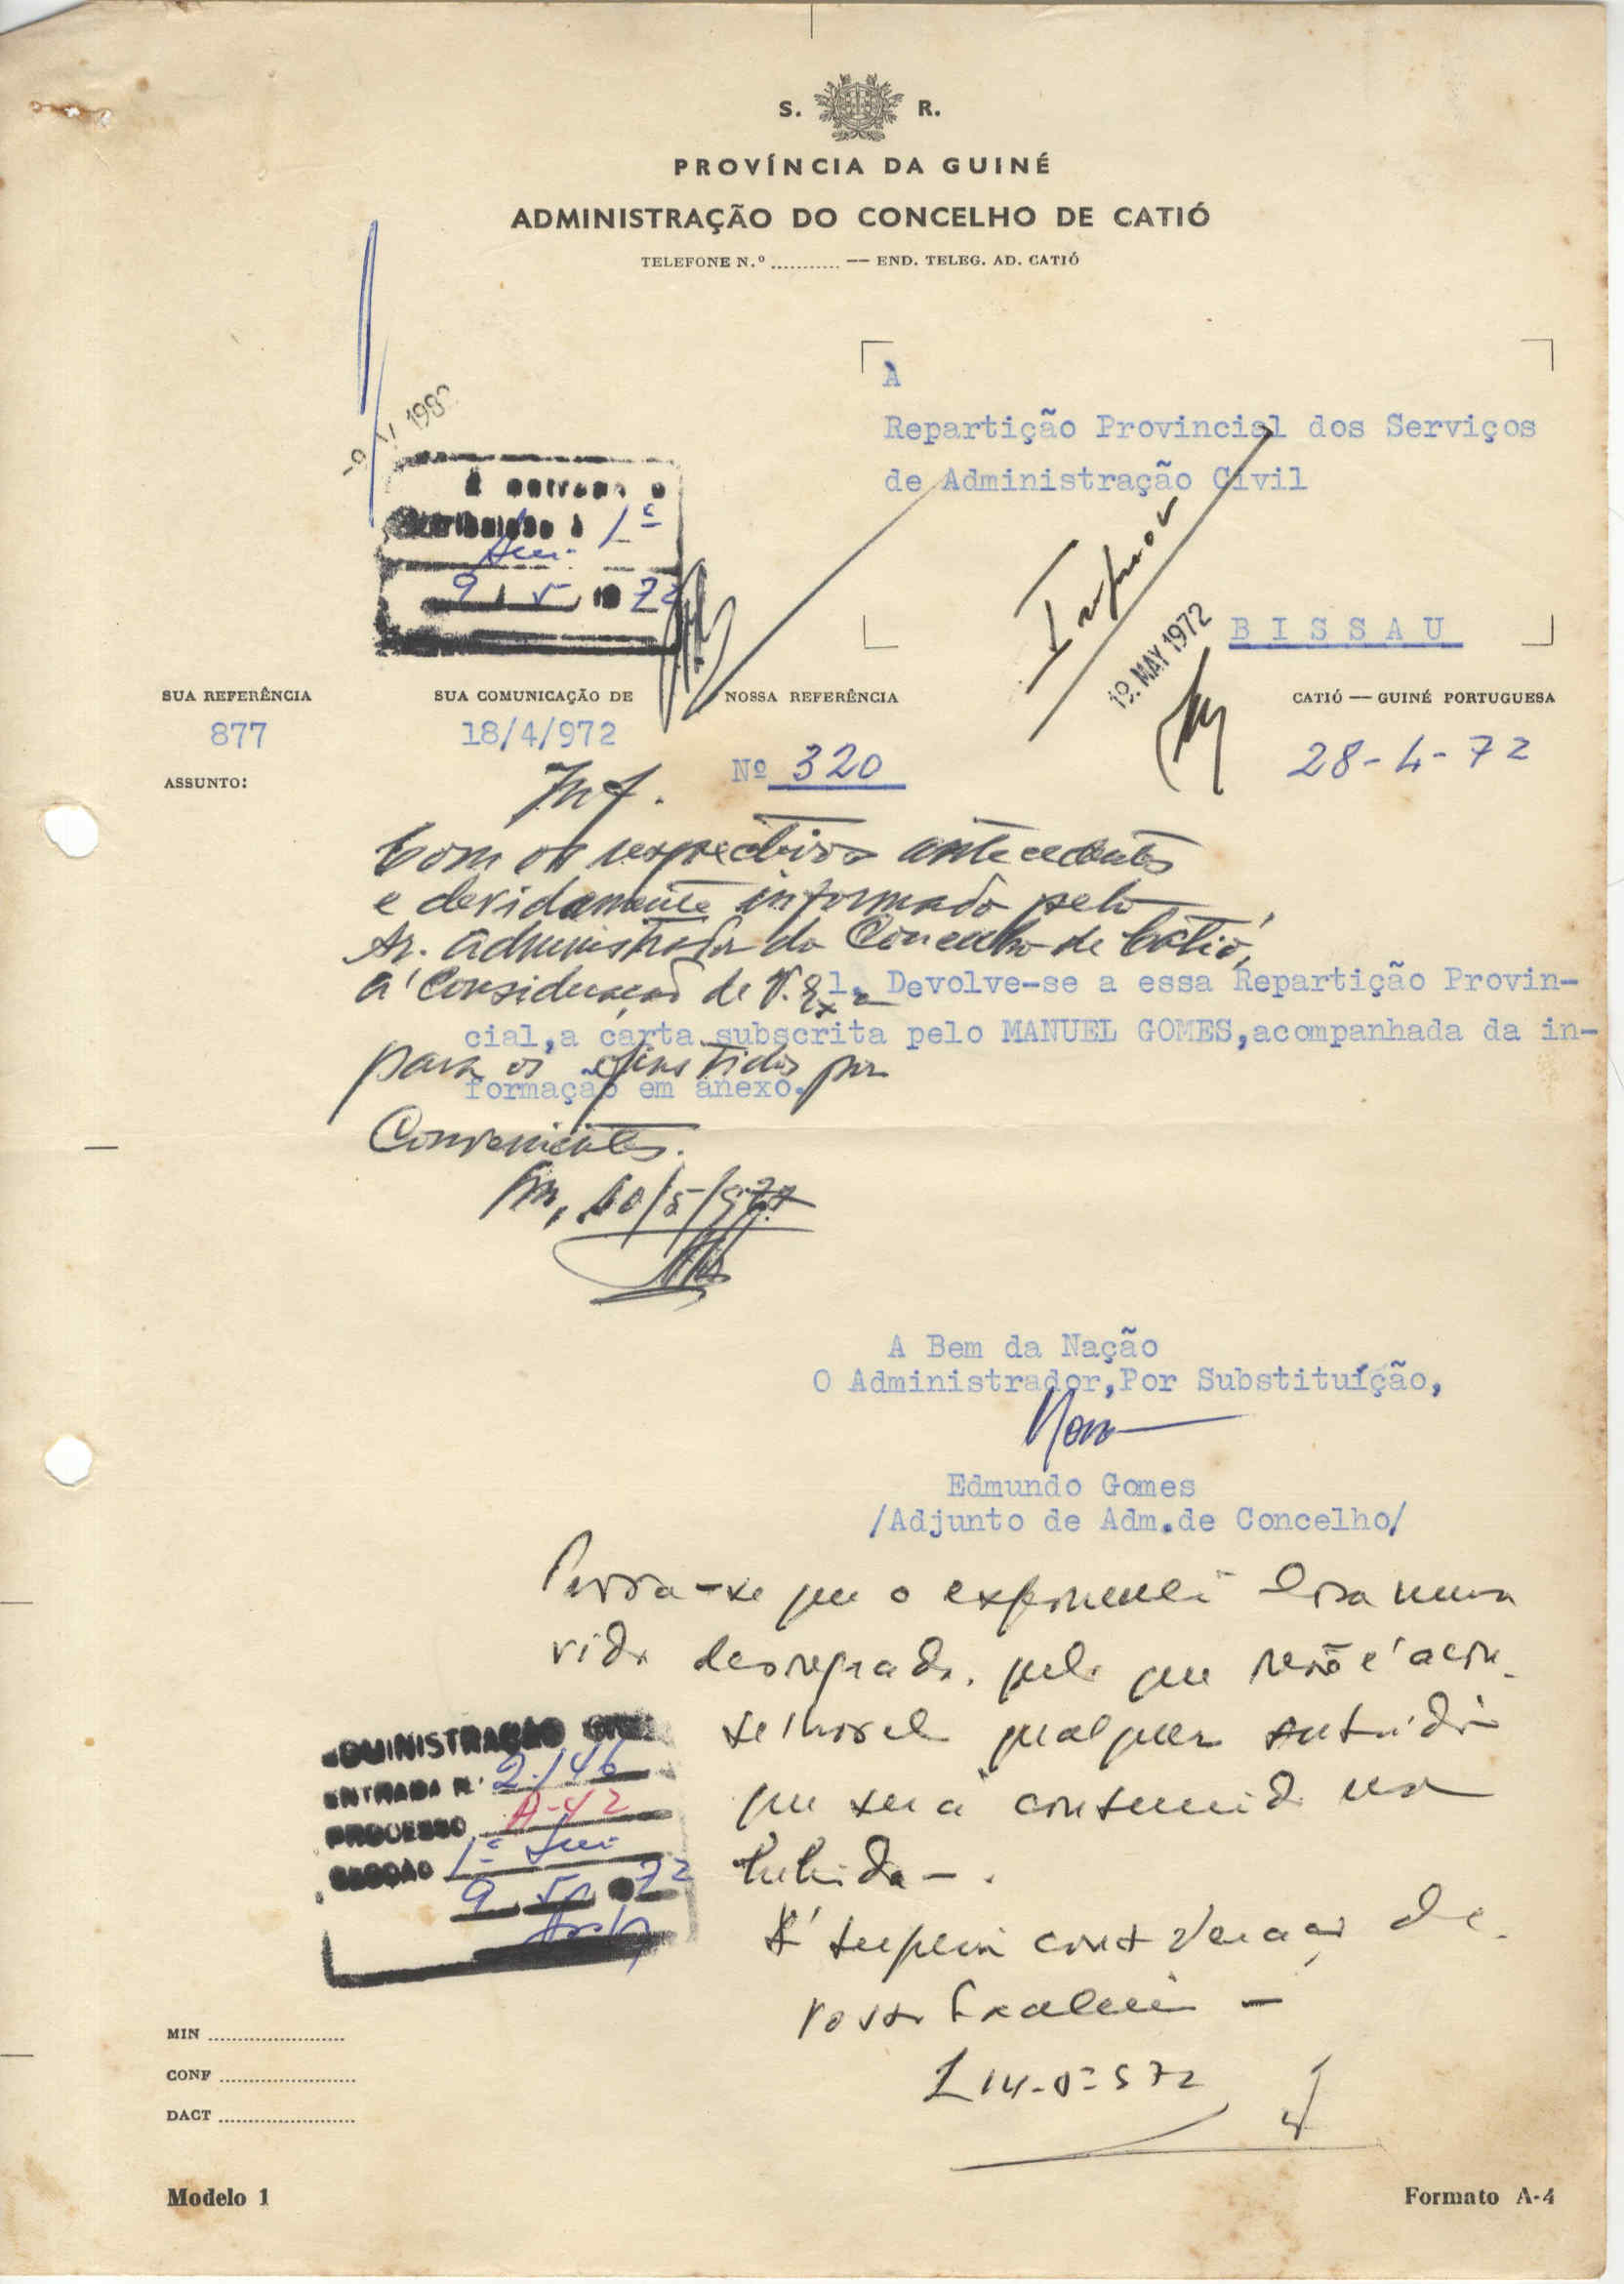 S. R.
PROVÍNCIA DA GUINÉ
ADMINISTRAÇÃO DO CONCELHO DE CATIÓ
TELEFONE N.º ........... — END. TELEG. AD. CATIÓ
À
Repartição Provincial dos Serviços
de Administração Civil
BISSAU
À entrada e
distribuido à
1ª
9 5 1972
Informar
19. MAY 1972
SUA REFERÊNCIA
877
SUA COMUNICAÇÃO DE
18/4/972
NOSSA REFERÊNCIA
Nº 320
CATIÓ — GUINÉ PORTUGUESA
28-4-72
ASSUNTO:
Inf.
Com os respectivos antecedentes
e devidamente informado pelo
Sr. Administrador do Concelho de Catió,
à consideração de V. Exª
para os fins tidos por
Convenientes.
10/5/972
1. Devolve-se a essa Repartição Provin-
cial,a carta subscrita pelo MANUEL GOMES,acompanhada da in-
formação em anexo.
A Bem da Nação
O Administrador,Por Substituíção,
Edmundo Gomes
/Adjunto de Adm.de Concelho/
que o exponente leva uma
vida desregrada, pelo que não é acon-
selhavel qualquer subsídio
que será consumido na
bebida.
À superior consideração de
Vossa Excelência
14-5-972
ADMINISTRAÇÃO CIVIL
ENTRADA N.º 2.146
PROCESSO A-42
SECÇÃO 1ª
9 5 72
MIN ......................
CONF ......................
DACT ......................
Modelo 1
Formato A-4